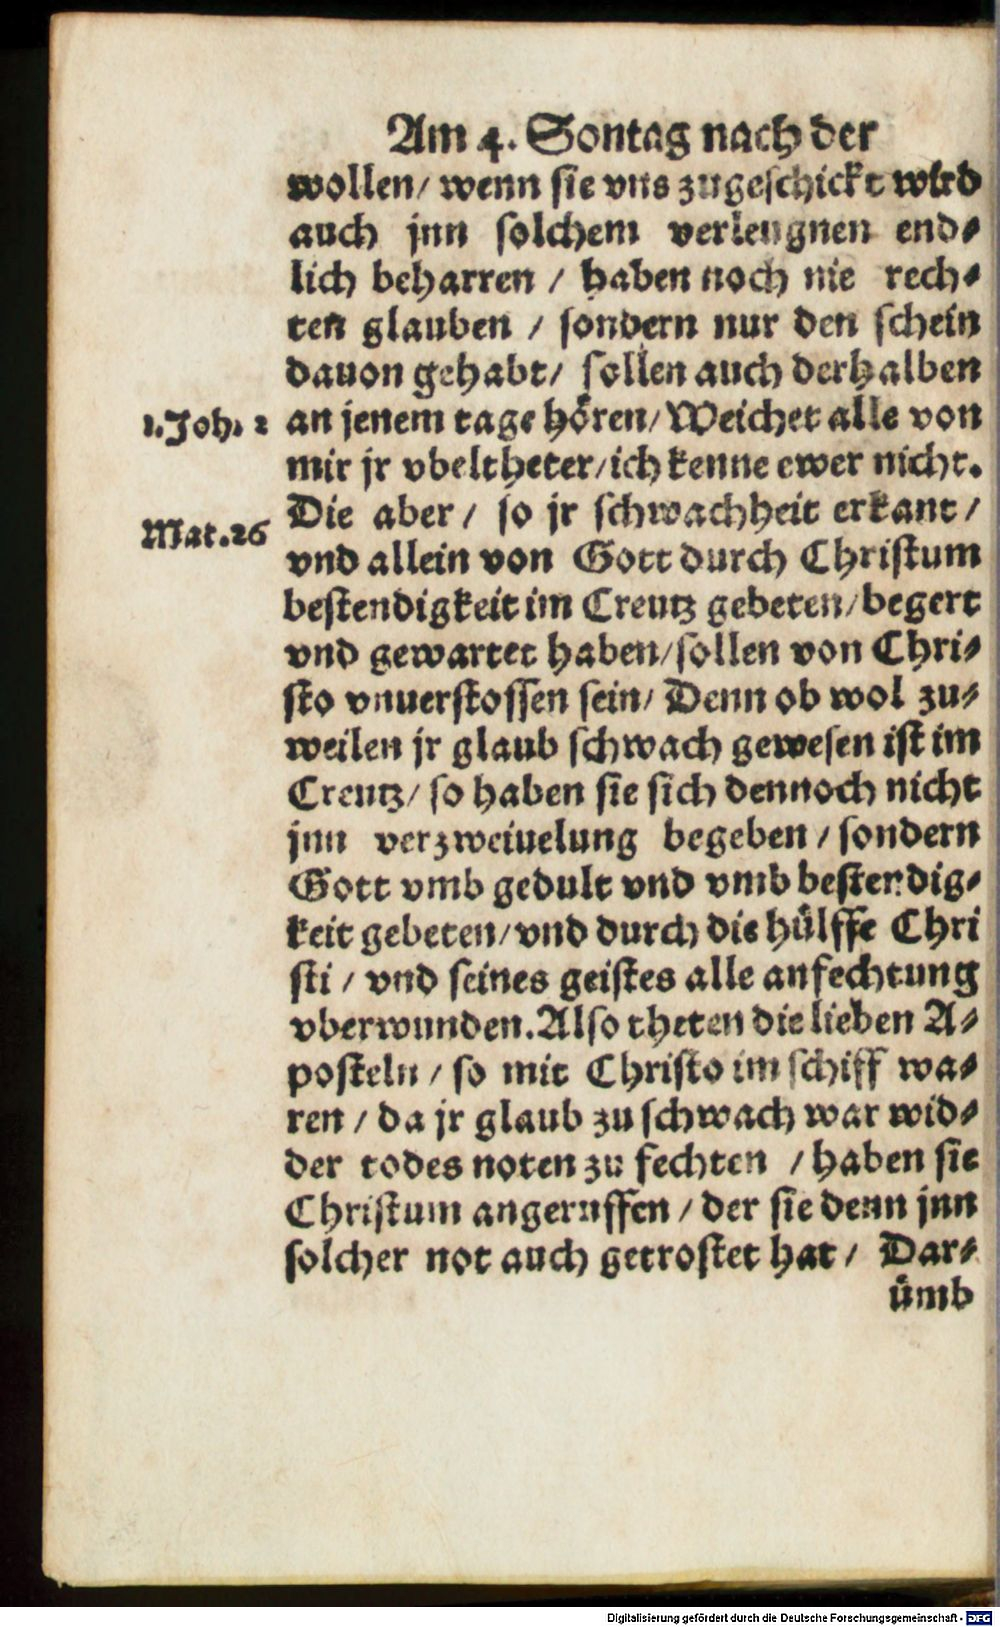 Am 4. Sontag nach der
wollen/ wenn sie vns zugeschickt wird
auch jnn solchem verleugnen end⸗
lich beharren / haben noch nie rech⸗
ten glauben / sondern nur den schein
dauon gehabt/ sollen auch derhalben
1.Joh. 2
an jenem tage hören/ Weichet alle von
mir jr vbeltheter/ich kenne ewer nicht.
Mat.26
Die aber / so jr schwachheit erkant /
vnd allein von Gott durch Christum
bestendigkeit im Creutz gebeten/begert
vnd gewartet haben/sollen von Chri⸗
sto vnuerstossen sein/ Denn ob wol zu⸗
weilen jr glaub schwach gewesen ist im
Creutz/ so haben sie sich dennoch nicht
jnn verzweiuelung begeben / sondern
Gott vmb gedult vnd vmb bestendig⸗
keit gebeten/vnd durch die hülffe Chri
sti / vnd seines geistes alle anfechtung
vberwunden.Also theten die lieben A⸗
posteln / so mit Christo im schiff wa⸗
ren / da jr glaub zu schwach war wid⸗
der todes noten zu fechten / haben sie
Christum angeruffen / der sie denn jnn
solcher not auch getrostet hat / Dar⸗
ümb
Digitalisierung gefördert durch die Deutsche Forschungsgemeinschaft - DFG